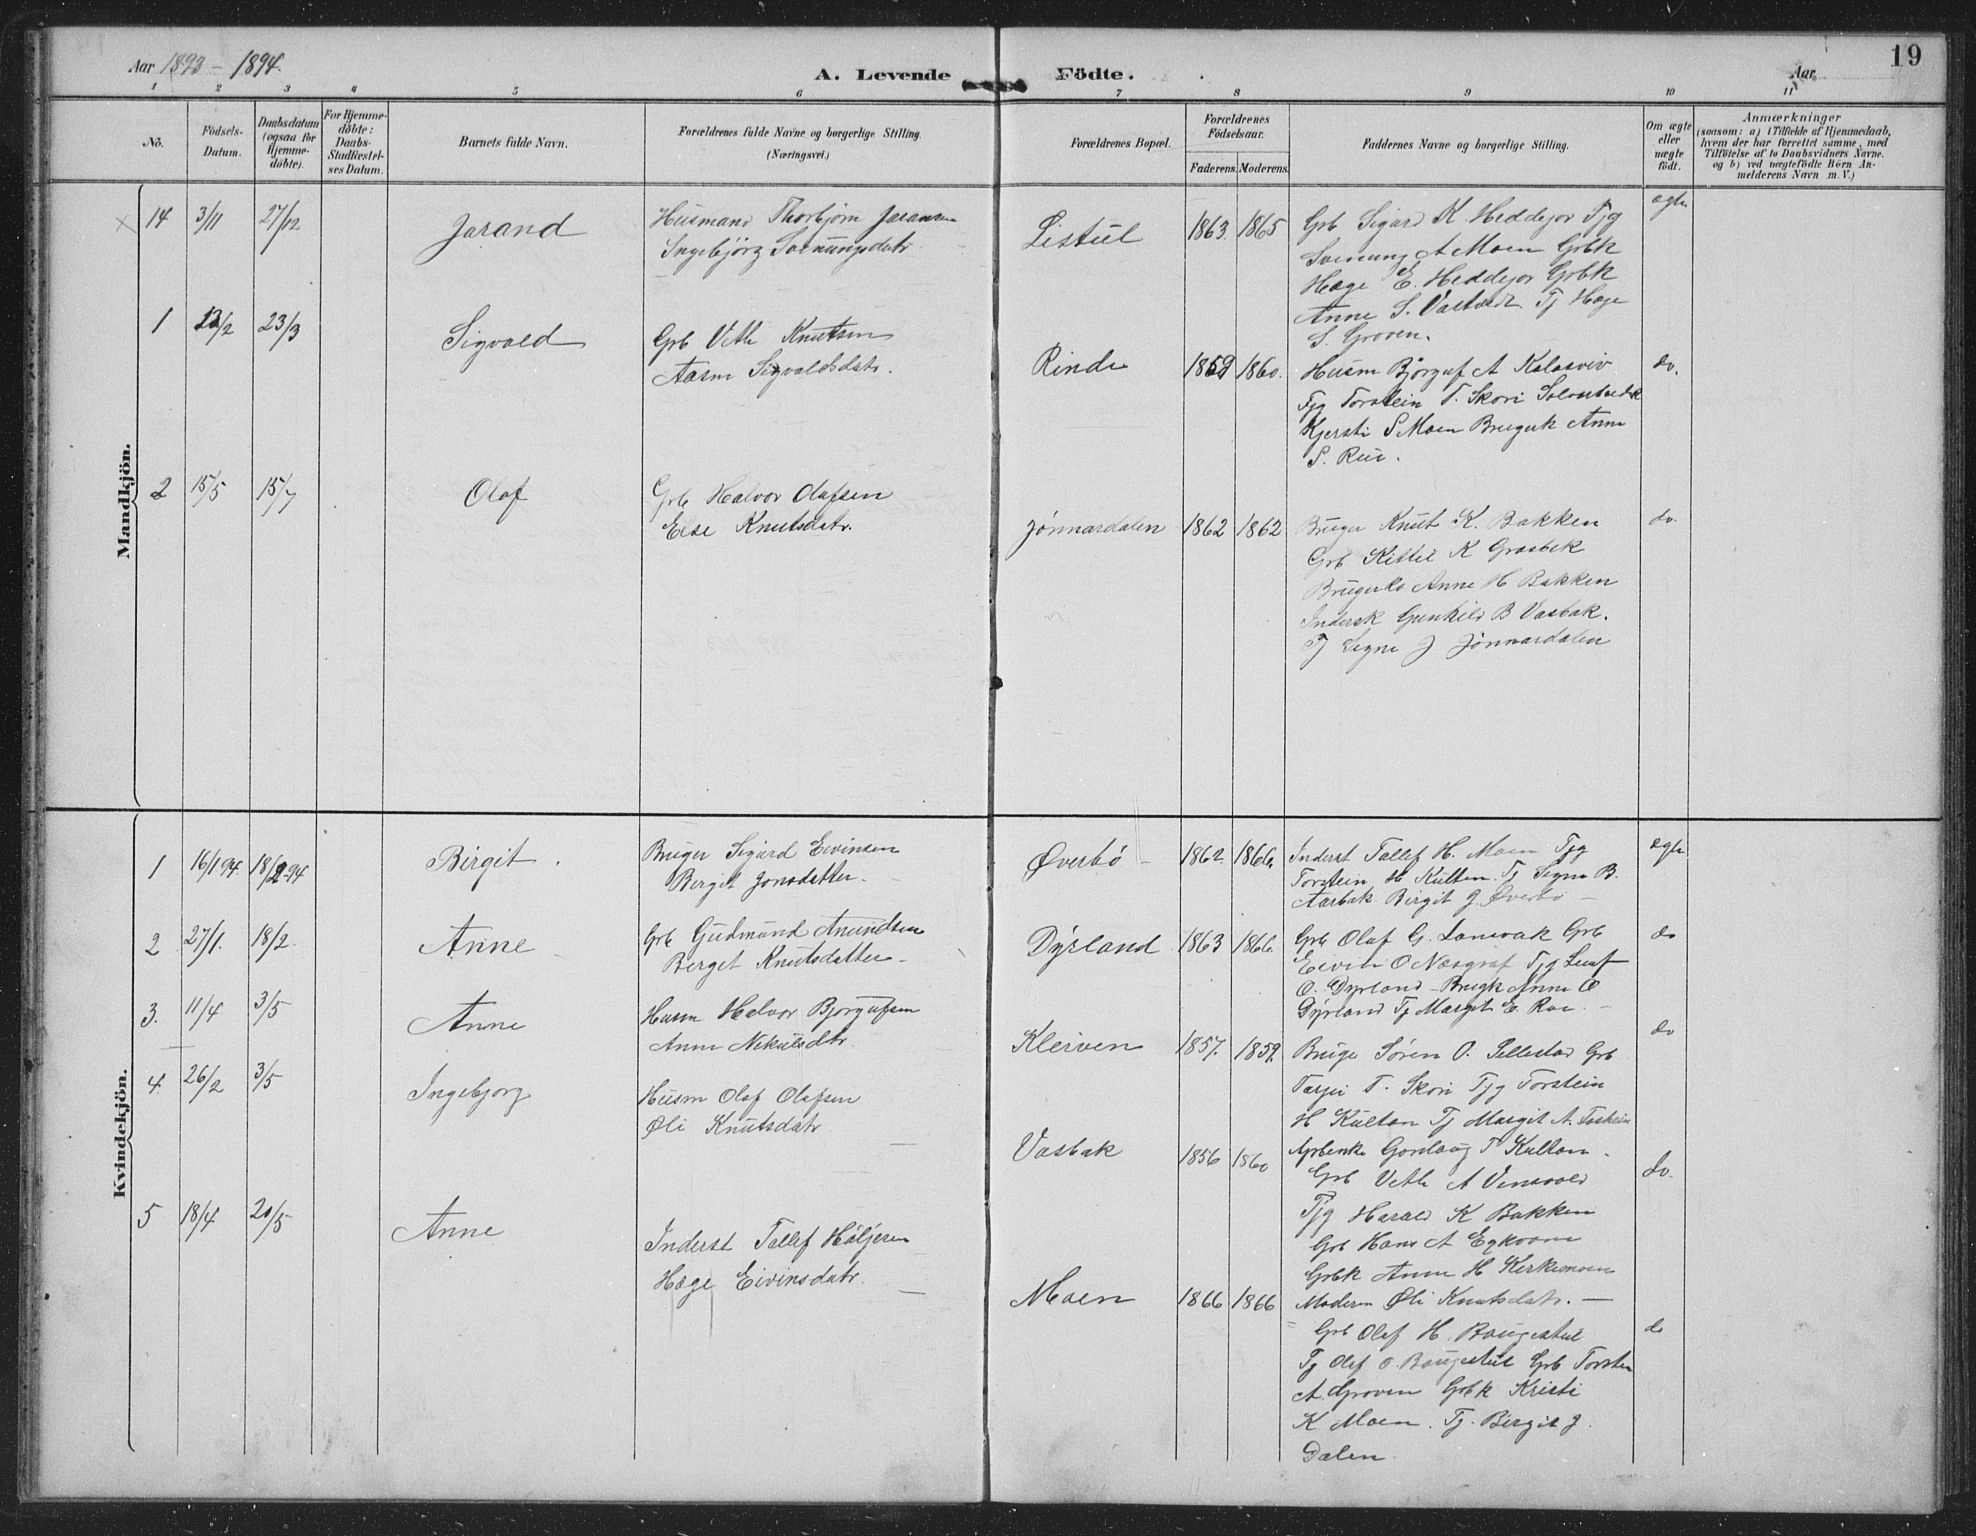 Aar 1893 - 1894.
A. Levende Födte.
Aar
19
1 2 3 4 5 6 7 8 9 10 11
No.
Födsels-
Datum.
Daabsdatum
(ogsaa for
Hjemme-
døbte).
For Hjemme-
døbte:
Daabs-
Stadfæstel-
ses Datum.
Barnets fulde Navn.
Forældrenes fulde Navne og borgerlige Stilling.
(Næringsvei.)
Forældrenes Bopæl.
Forældrenes
Fødselsaar.
Faderens. Moderens.
Faddernes Navne og borgerlige Stilling.
Om ægte
eller
uægte
født.
Anmærkninger
(saasom: a) i Tilfælde af Hjemmedaab,
hvem der har forrettet samme, med
Tilföielse af to Daabsvidners Navne,
og b) ved uægtefödte Börn An-
melderens Navn m. V.)
Mandkjön.
14 3/11 27/12 Jarand
Husmand Thorbjörn Jaransen
Ingebjörg Sveinungsdatr
Listül 1863. 1865
Grb Sigurd K. Heddejor Tjg
Sveinung A Moen Grbk
Hæge E. Heddejor Grbk
Anne S. Vastvedt. Tj Hæge
S. Groven.
ægte
1 23/2 23/3 Sigvald
Grb Vetle Knutsen
Aasne Sigvaldsdatr.
Rinde 1859 1860.
Husm Björguf A Kalasviv
Tjg Torstein T. Skori
Kjersti S Moen Brugerk Anne
S. Rui.
do.
2 15/5 15/7 Olaf
Grb Halvor Olafsen
Else Knutsdatr.
Jönnardalen 1862 1862
Bruger Knut K. Bakken
Grb Kittil K Grasbek
Anne H Bakken
Indersk Gunhild B Vasbak.
Tj Signe J Jönnardalen
do.
Kvindekjön.
1 16/1 94. 18/2 94 Birgit.
Bruger Sigurd Eivinsen
Bergit Jonsdatter.
Øverbö 1862. 1866.
Inderst Tallef H. Moen Tjg
Torstein H Kulten. Tj Signe B.
Aasbak Birgit J. Øverbö
ægte
2 27/1. 18/2. Anne
Grb Gudmund Anundsen
Berget Knutsdatter
Dyrland 1863 1866.
Grb Olaf G. Lonevak Grb
Eivin O Næsgraf Tjg Leuf
O. Dyrland - Brugk Anne O
Dyrland Tj Margit E. Roe
do
3. 11/4 3/5 Anne
Husm Halvor Björgufsen
Anne Nikülsdtr.
Kleiven 1857. 1859.
Bruge Sören O. Sellestad Grb
Tarjei T. Skori Tjg Torstein
H Kultan Tj Margit A.
do
4. 26/2 3/5 Ingebjorg
Husm Olaf Olafsen
Øli Knutsdatr
Vasbak 1856 1860
Gonlaug T Kultan.
Grb Vetle A Vensvold
Tjg Harald K Bakken
Grb Hans A Egkvam
Grbk Anne H Kirkemoen
Moderen Øli Knutsdatr.
do.
5 18/4 20/5 Anne
Inderst Tallef Höljesen
Hæge Eivinsdatr.
Moen 1866 1866
Grb Olaf H. Baugestul
Tj Olaf O. Baugestul Grb Torsten
A. Groven Grbk Kristi
K Moen. Tj. Birgit J.
Dalen.
do